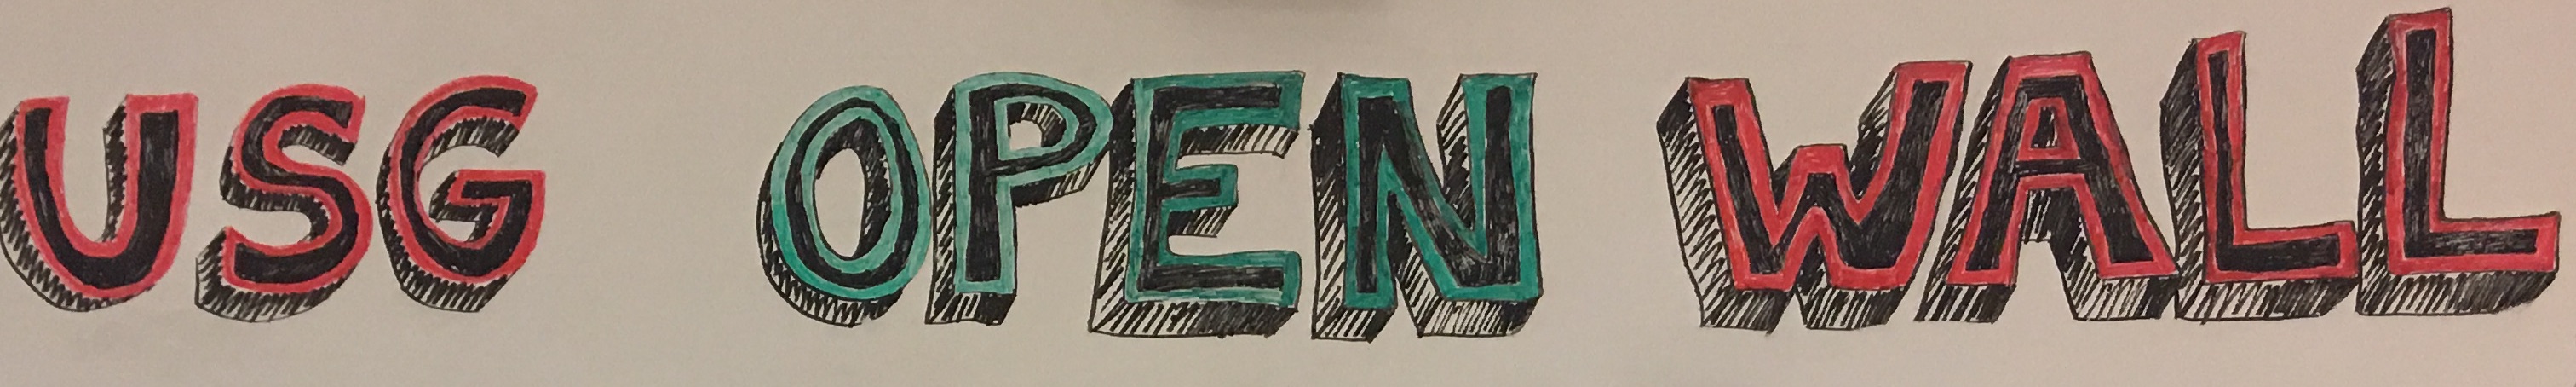 USG OPEN WALL